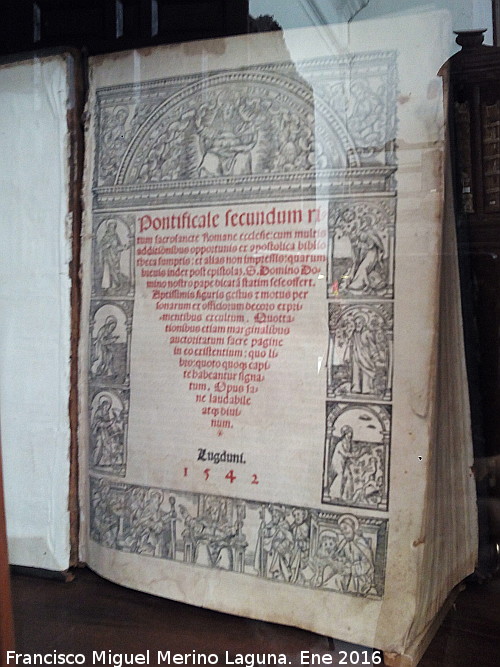 Pontificale secundum ri-
tum sacrosancte Romane ecclesie: cum multis
additionibus opportunis ex apostolica biblio
theca sumptis: et alias non impressis: quarum
index post epistolas. S. Domino Do-
mino nostro pape dicatã statim sese offert.
Aptissimis figuris gestus et motus per
sonarum et officiorum decoro expri-
mentibus excultum. Quotta-
tionibus etiam marginalibus
auctoritatum sacre pagine
in eo existentium: quo li-
bro: quoto quoqȝ capi-
te habeantur signa-
tum. Opus sa-
ne laudabile
atqȝ divi-
num.
Lugduni.
1542
Francisco Miguel Merino Laguna. Ene 2016